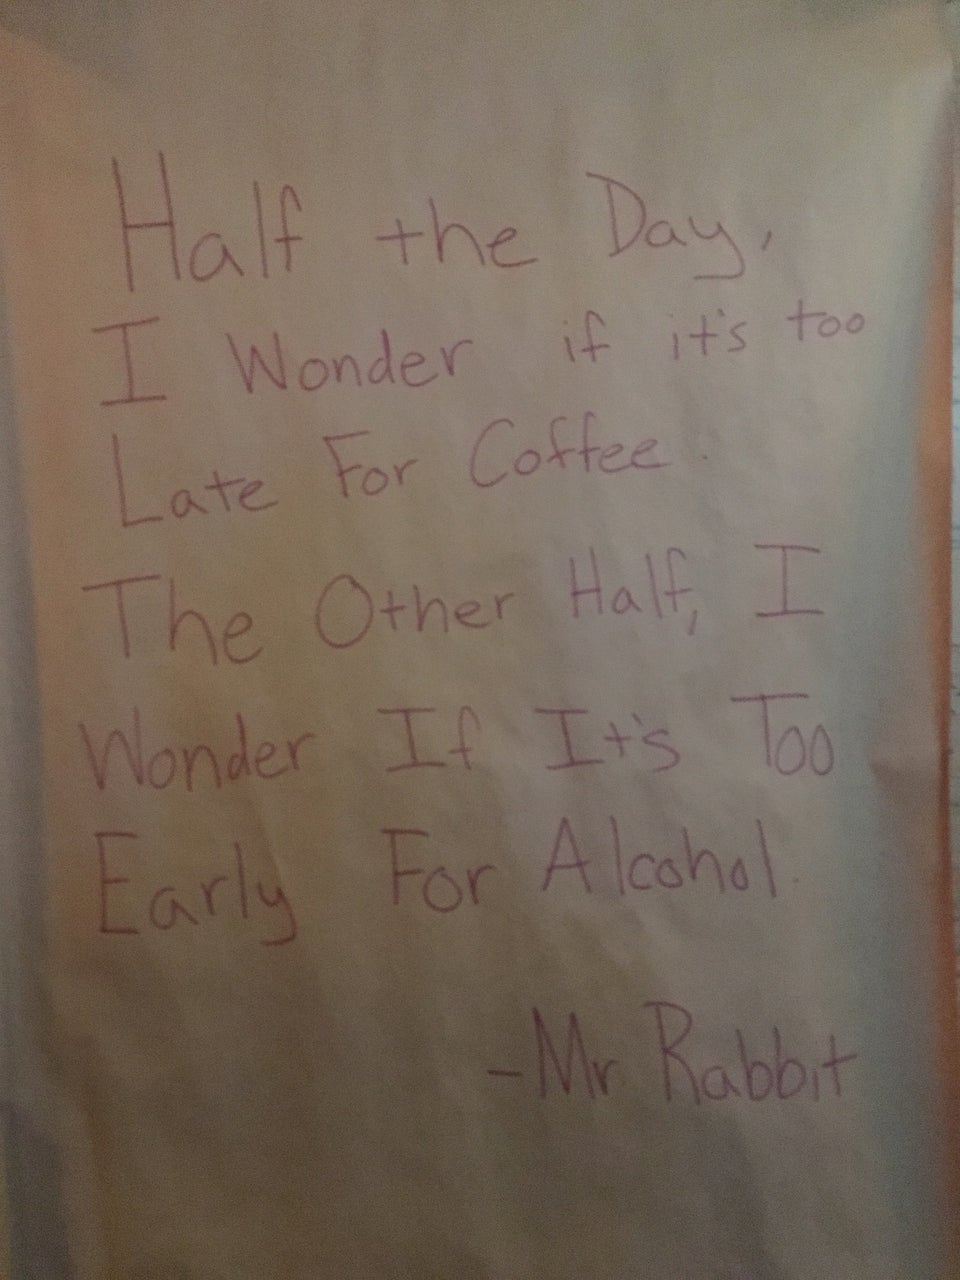 Half the Day,
I Wonder if it's too
Late For Coffee.
The Other Half, I
Wonder If It's Too
Early For Alcohol.
-Mr Rabbit